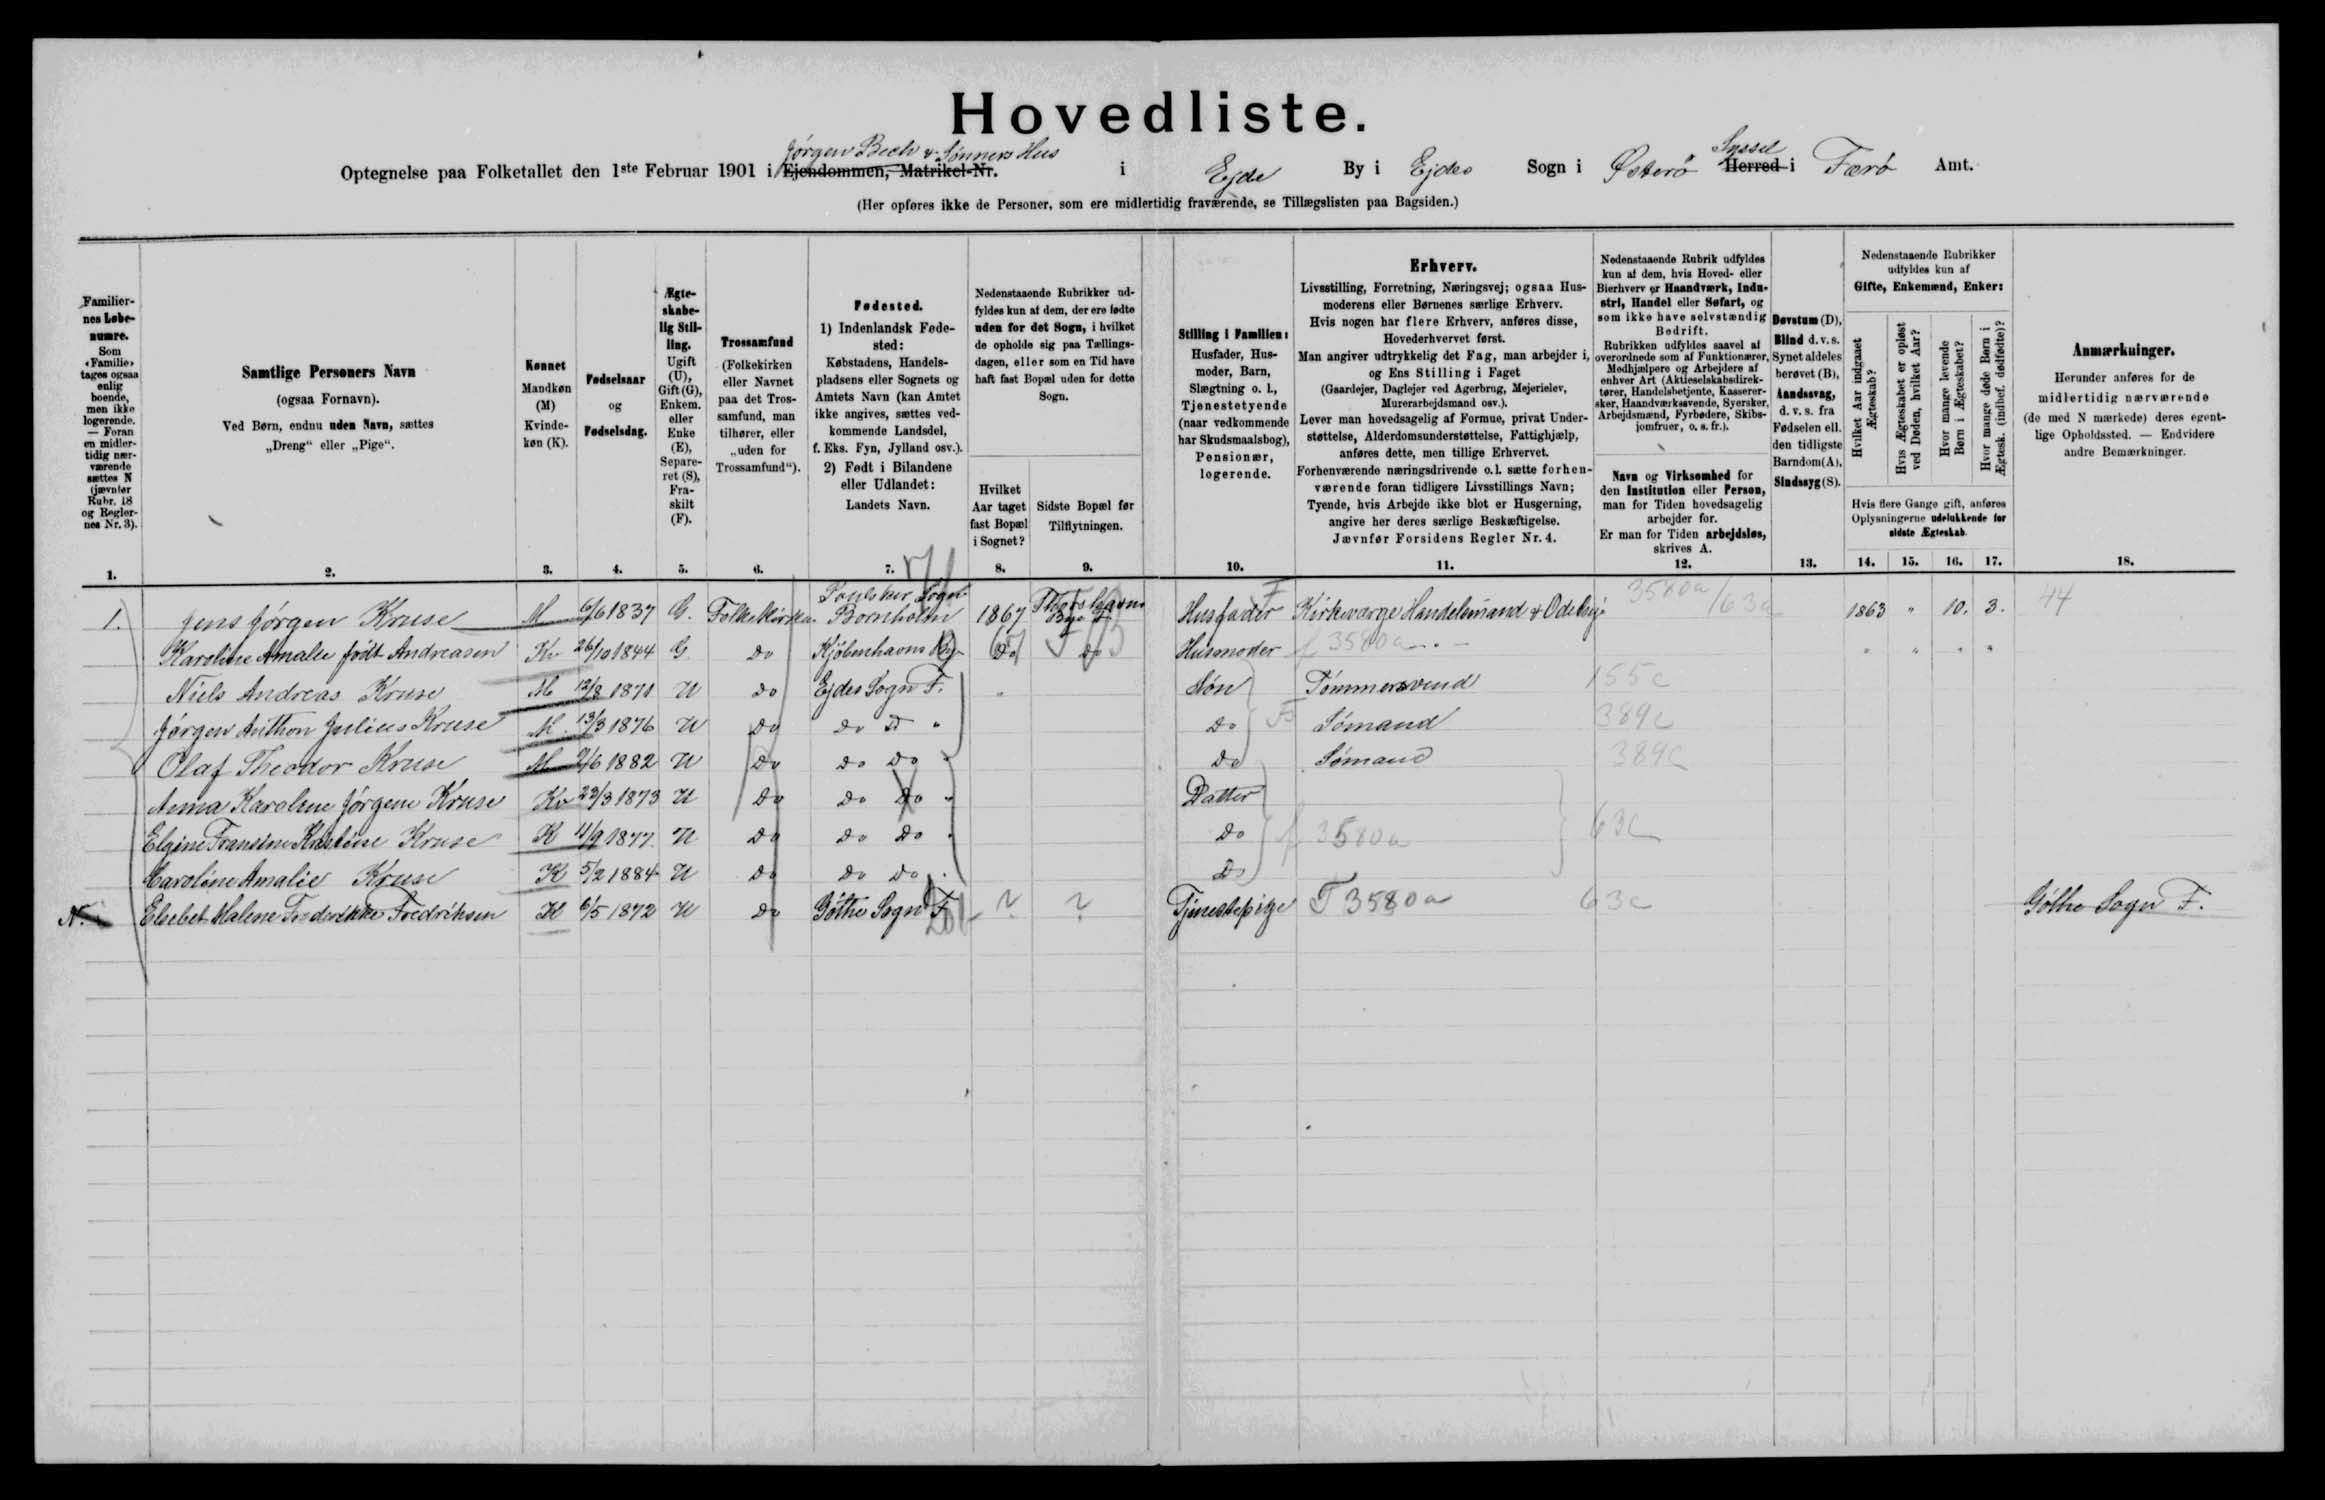 Hovedliste.
Jørgen Bech & Sønners Hus
Syssel
Optegnelse paa Folketallet den 1ste Februar 1901 i Ejendommen, Matrikel-Nr. i Ejde By i Ejdes Sogn i Østerø Herred i Færø Amt.
(Her opføres ikke de Personer, som ere midlertidig fraværende, se Tillægslisten paa Bagsiden.)
Familier-
nes Løbe-
numre.
Som
«Familie»
tages ogsaa
enlig
boende,
men ikke
logerende.
— Foran
en midler-
tidig nær-
værende
sættes N
(jævnfør
Rubr. 18
og Regler-
nes Nr. 3).
Samtlige Personers Navn
(ogsaa Fornavn).
Ved Børn, endnu uden Navn, sættes
„Dreng“ eller „Pige“.
Kønnet
Mandkøn
(M)
Kvinde-
køn (K).
Fødselsaar
og
Fødselsdag.
Ægte-
skabe-
lig Stil-
ling.
Ugift
(U),
Gift (G),
Enkem.
eller
Enke
(E),
Separe-
ret (S),
Fra-
skilt
(F).
Trossamfund
(Folkekirken
eller Navnet
paa det Tros-
samfund, man
tilhører, eller
„uden for
Trossamfund“).
Fødested.
1) Indenlandsk Føde-
sted:
Købstadens, Handels-
pladsens eller Sognets og
Amtets Navn (kan Amtet
ikke angives, sættes ved-
kommende Landsdel,
f. Eks. Fyn, Jylland osv.).
2) Født i Bilandene
eller Udlandet:
Landets Navn.
Nedenstaaende Rubrikker ud-
fyldes kun af dem, der ere fødte
uden for det Sogn, i hvilket
de opholde sig paa Tællings-
dagen, eller som en Tid have
haft fast Bopæl uden for dette
Sogn.
Hvilket
Aar taget
fast Bopæl
i Sognet?
Sidste Bopæl før
Tilflytningen.
Stilling i Familien:
Husfader, Hus-
moder, Barn,
Slægtning o. l.,
Tjenestetyende
(naar vedkommende
har Skudsmaalsbog),
Pensionær,
logerende.
Erhverv.
Livsstilling, Forretning, Næringsvej; ogsaa Hus-
moderens eller Børnenes særlige Erhverv.
Hvis nogen har flere Erhverv, anføres disse,
Hovederhvervet først.
Man angiver udtrykkelig det Fag, man arbejder i,
og Ens Stilling i Faget
(Gaardejer, Daglejer ved Agerbrug, Mejerielev,
Murerarbejdsmand osv.).
Lever man hovedsagelig af Formue, privat Under-
støttelse, Alderdomsunderstøttelse, Fattighjælp,
anføres dette, men tillige Erhvervet.
Forhenværende næringsdrivende o. l. sætte forhen-
værende foran tidligere Livsstillings Navn;
Tyende, hvis Arbejde ikke blot er Husgerning,
angive her deres særlige Beskæftigelse.
Jævnfør Forsidens Regler Nr. 4.
Nedenstaaende Rubrik udfyldes
kun af dem, hvis Hoved- eller
Bierhverv er Haandværk, Indu-
stri, Handel eller Søfart, og
som ikke have selvstændig
Bedrift.
Rubrikken udfyldes saavel af
overordnede som af Funktionærer,
Medhjælpere og Arbejdere af
enhver Art (Aktieselskabsdirek-
tører, Handelsbetjente, Kasserer-
sker, Haandværkssvende, Syersker,
Arbejdsmænd, Fyrbødere, Skibs-
jomfruer, o. s. fr.).
Navn og Virksomhed for
den Institution eller Person,
man for Tiden hovedsagelig
arbejder for.
Er man for Tiden arbejdsløs,
skrives A.
Døvstum (D),
Blind d. v. s.
Synet aldeles
berøvet (B),
Aandssvag,
d. v. s. fra
Fødselen ell.
den tidligste
Barndom (A),
Sindssyg (S).
Nedenstaaende Rubrikker
udfyldes kun af
Gifte, Enkemænd, Enker:
Hvilket Aar indgaaet
Ægteskab?
Hvis Ægteskabet er opløst
ved Døden, hvilket Aar?
Hvor mange levende
Børn i Ægteskabet?
Hvor mange døde Børn i
Ægtesk. (indbef. dødfødte)?
Hvis flere Gange gift, anføres
Oplysningerne udelukkende for
sidste Ægteskab.
Anmærkninger.
Herunder anføres for de
midlertidig nærværende
(de med N mærkede) deres egent-
lige Opholdssted. — Endvidere
andre Bemærkninger.
1. 2. 3. 4. 5. 6. 7. 8. 9. 10. 11. 12. 13. 14. 15. 16. 17. 18.
Poulsker Sogn Thorshavn
1. Jens Jørgen Kruse M 6/6 1837 G. Folkekirken Bornholm 1867 By F Husfader Kirkeværge Handelsmand & Odelsbj. 3580a/63a 1863 " 10. 3. 44
Karoline Amalie født Andreasen Kv 26/10 1844 G Do Kjøbenhavns By Do Do Husmoder f 3580a " " " "
Niels Andreas Kruse M 12/8 1871 U Do Ejdes Sogn F. " Søn Tømmersvend 155c
Jørgen Anthon Julius Kruse M. 13/3 1876 U Do Do D " Do Sømand 389c
Olaf Theodor Kruse M 2/6 1882 U Do Do Do Do Sømand 389c
Anna Karoline Jørgene Kruse Kv 23/3 1873 U Do Do Do " Datter
Elgine Fransine Kristine Kruse K 11/9 1877. U Do Do Do " Do f 3580a 63c
Caroline Amalie Kruse K 5/2 1884 U Do Do Do . Do
N. Elsebet Malene Frederikke Fredriksen K 6/5 1872 U Do Gøthe Sogn F ? ? Tjenestepige T 3580a 63c Gøthe Sogn F.